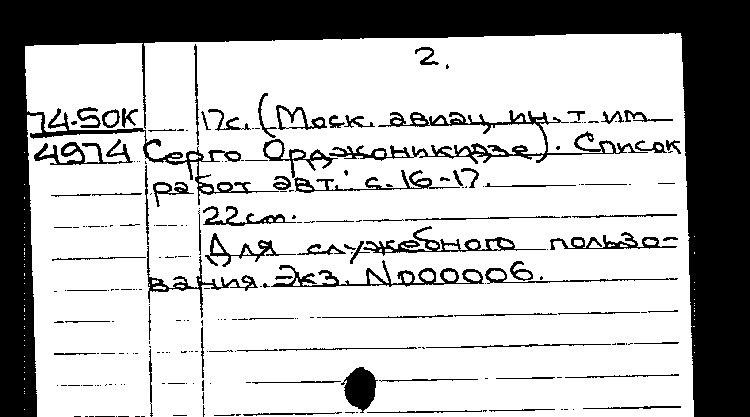 2.
74-50К 17с. (Моск. авиац. ин-т им.
4974 Серго Орджоникидзе). Список
работ авт.: с. 16-17.
22см.
Для служебного пользо-
вания. Экз. N000006.